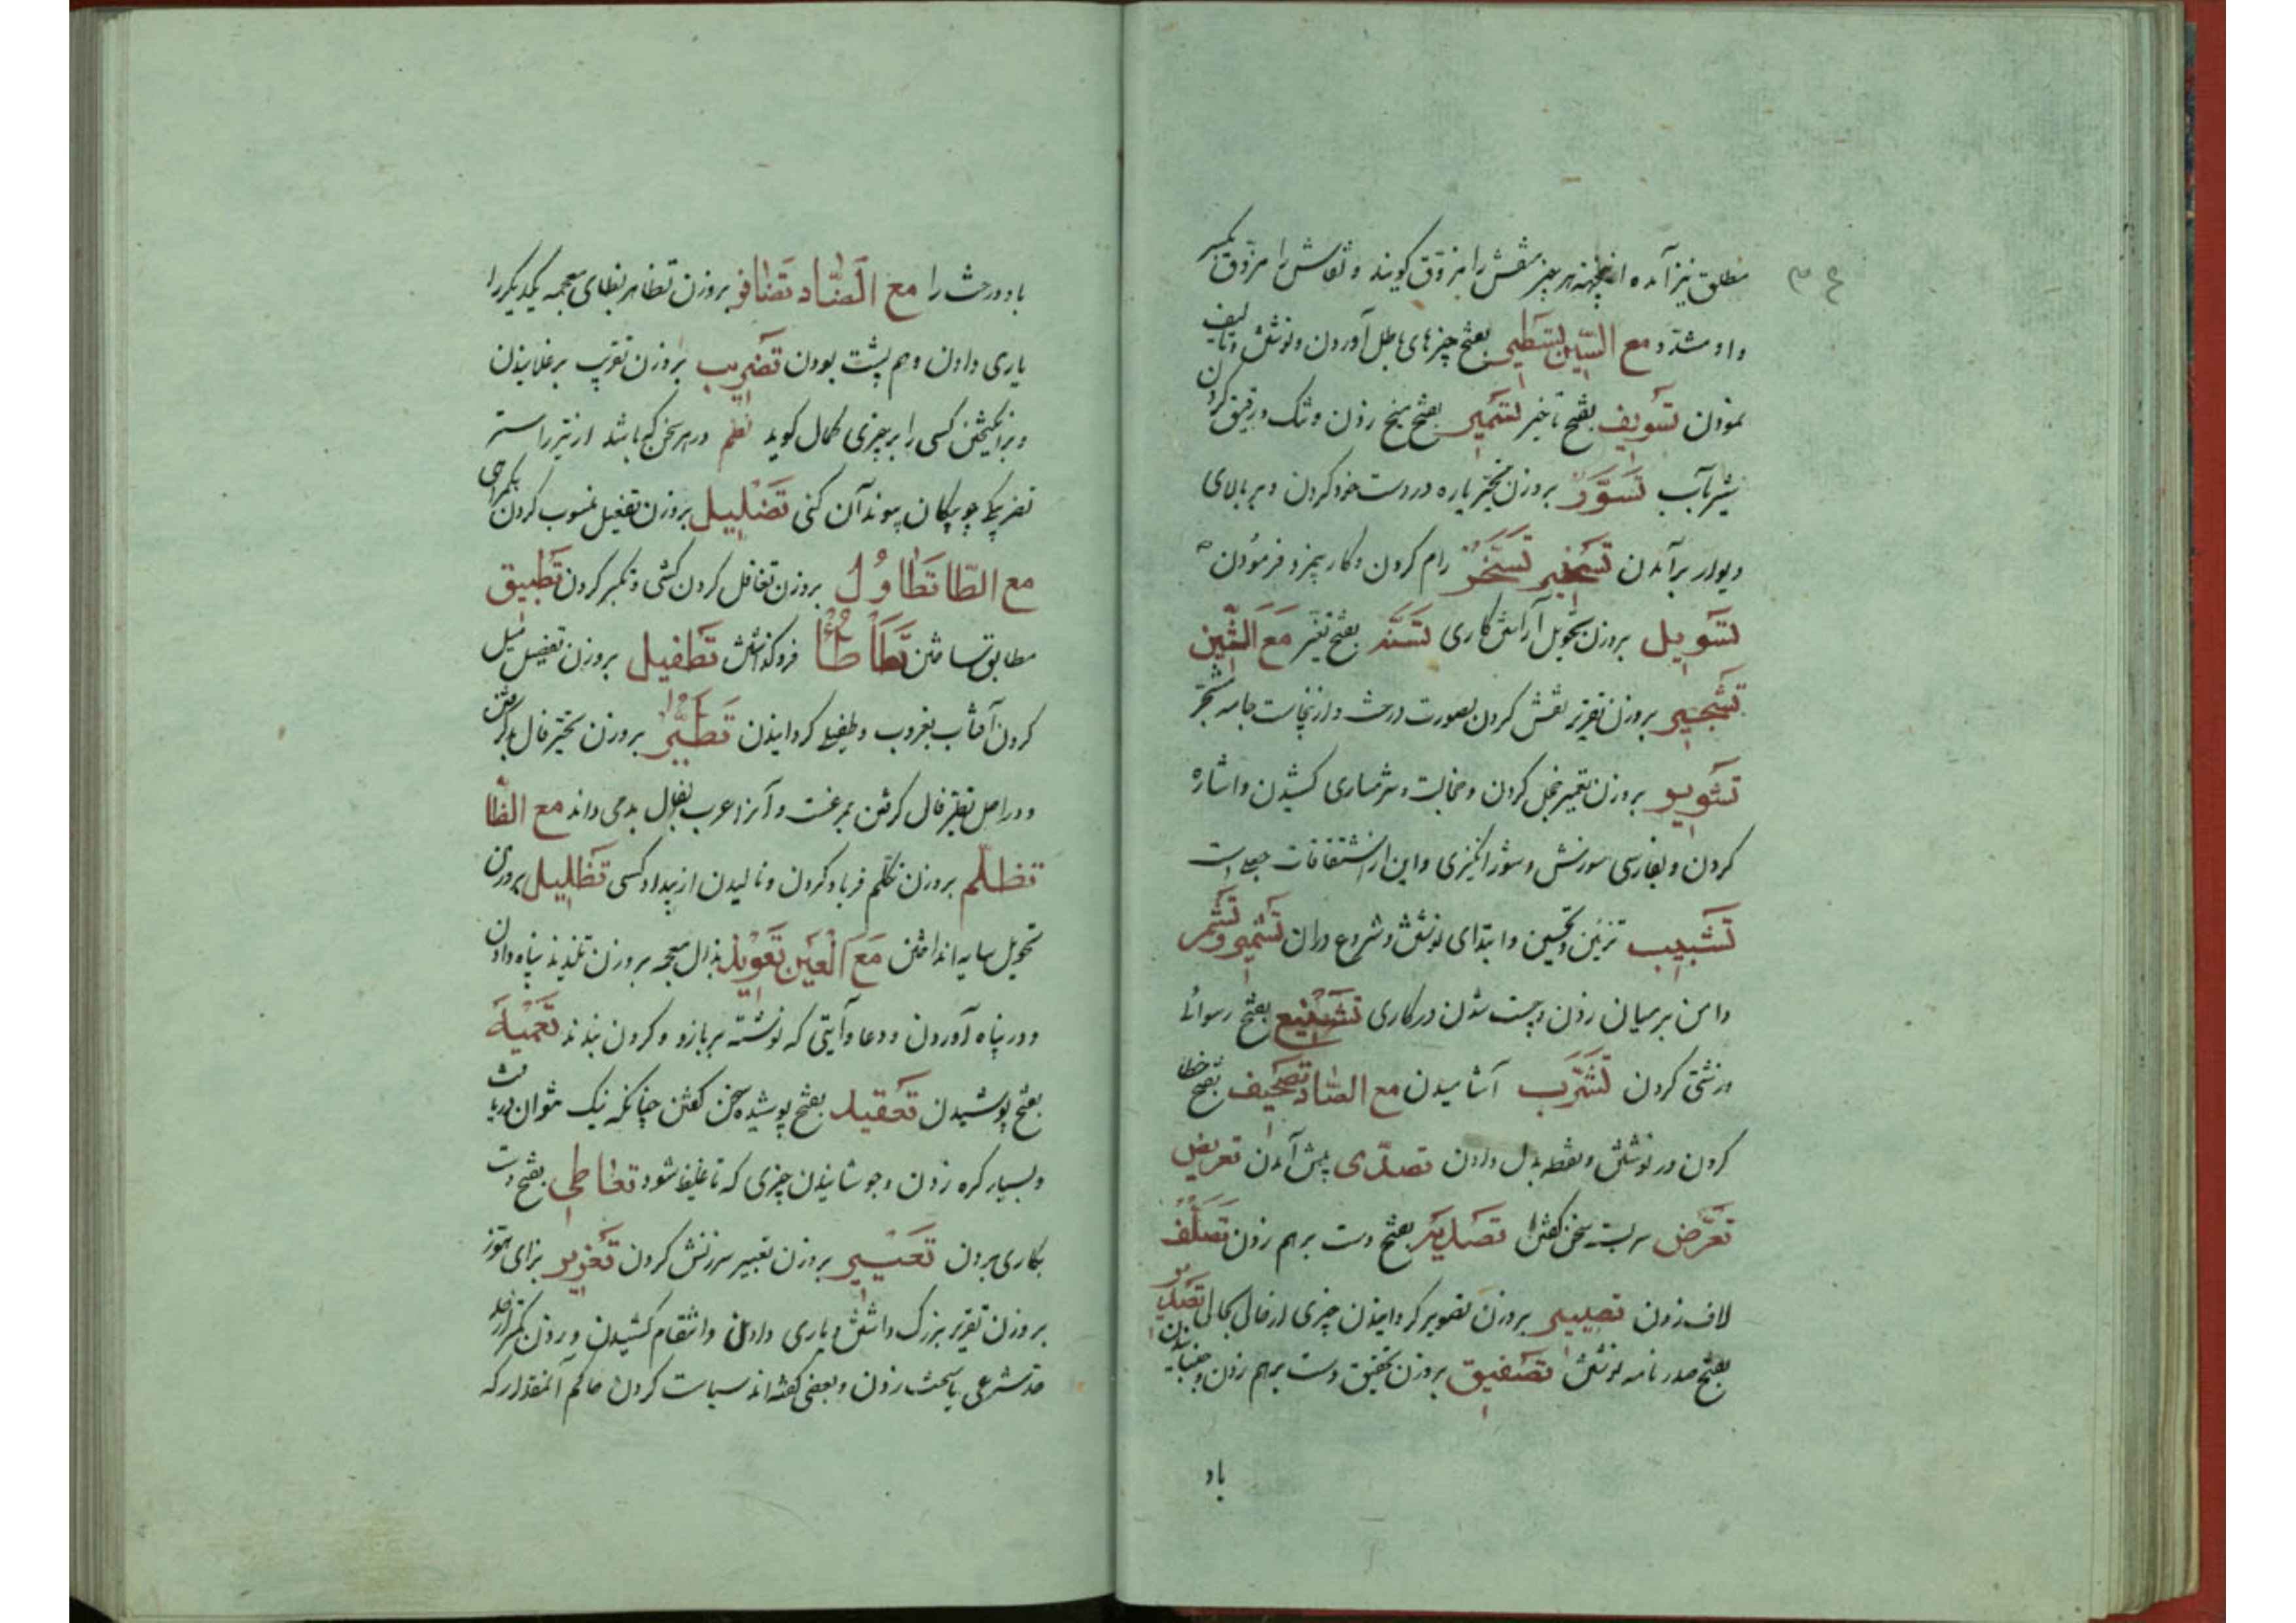 ۳۴
مطلق نیز آمده ازینجهة هر چیز منقش را مزوق کویند و نقاش را مزوق بکسر
واو مشدد مع السین تسطیر بفتح چیزهای باطل آوردن و نوشتن و تالیف
نمودن تسویف بفتح تاخیر تسمیر بفتح میخ زدن و تنک و رقیق کردن
شیر بآب تسوّر بروزن تحیّر یاره در دست خود کردن و بر بالای
دیوار برآمدن تسخیر تسخّر رام کردن و کار بیمزد فرمودن
تسویل بروزن تحویل آرایش کاری تسنّه بفتح تغیّر مع الشین
تشجیر بروزن تقریر نقش کردن بصورت درخت و ازینجاست جامه مشجّر
تشویر بروزن تعمیر خجل کردن و خجالت و شرمساری کشیدن و اشاره
کردن و بفارسی سوزش و شورانکیزی و این از اشتقاقات جعلی است
تشبیب تزیین و تحسین و ابتدای نوشتن و شروع دران تشمیر و تشمّر
دامن بر میان زدن و چست شدن در کاری تشنیع بفتح رسوائی
و زشتی کردن تشرّب آشامیدن مع الصاد تصحیف بفتح خطا
کردن در نوشتن و نقطه بدل دادن تصدّی پیش آمدن تعریض
تعرّض سربسته سخن کفتن تصدیه بفتح دست برهم زدن تصلّف
لاف زدن تصییر بروزن تصویر کردانیدن چیزی از حالی بحالی تصدیر
بفتح صدر نامه نوشتن تصفیق بروزن تحقیق دست برهم زدن و جنبانیدن
باد
باد درخت را مع الضاد تضافر بروزن تظاهر بظای معجمه یکدیکر را
یاری دادن و هم پشت بودن تضریب بروزن تقریب برغلانیدن
و برانکیختن کسی را بر چیزی کمال کوید نظم در هر سخن که باشد از تیر راستر
تضریب چو پیکان پیوند آن کنی تضلیل بروزن تفعیل منسوب کردن بکمراهی
مع الطا تطاول بروزن تغافل کردن کشی و تکبر کردن تطبیق
مطابق ساختن تطأطأ فروکذاشتن تطفیل بروزن تفضیل میل
کردن آفتاب بغروب و طفیل کردانیدن تطیّر بروزن تحیّر فال بد کرفتن
و در اصل تطیّر فال کرفتن بمرغست و آنرا عرب بفال بد می داند مع الظا
تظلّم بروزن تکلّم فریاد کردن و نالیدن از بیداد کسی تظلیل بروزن
تحویل سایه انداختن مع العین تعویذ بذال معجمه بروزن تلذیذ پناه دادن
و در پناه آوردن و دعا و آیتی که نوشته بر بازو و کردن بندند تعمیه
بفتح پوشیدن تعقید بفتح پوشیده سخن کفتن چنانکه نیک نتوان دریافت
و بسیار کره زدن و جوشانیدن چیزی که تا غلیظ شود تعاطی بفتح دست
بکاری بردن تعییر بروزن تغییر سرزنش کردن تعزیر بزای هوز
بروزن تقریر بزرک داشتن و یاری دادن و انتقام کشیدن و زدن کمتر از حد
حد شرعی یا سخت زدن و بعضی کفته اند سیاست کردن حاکم آنمقدار که